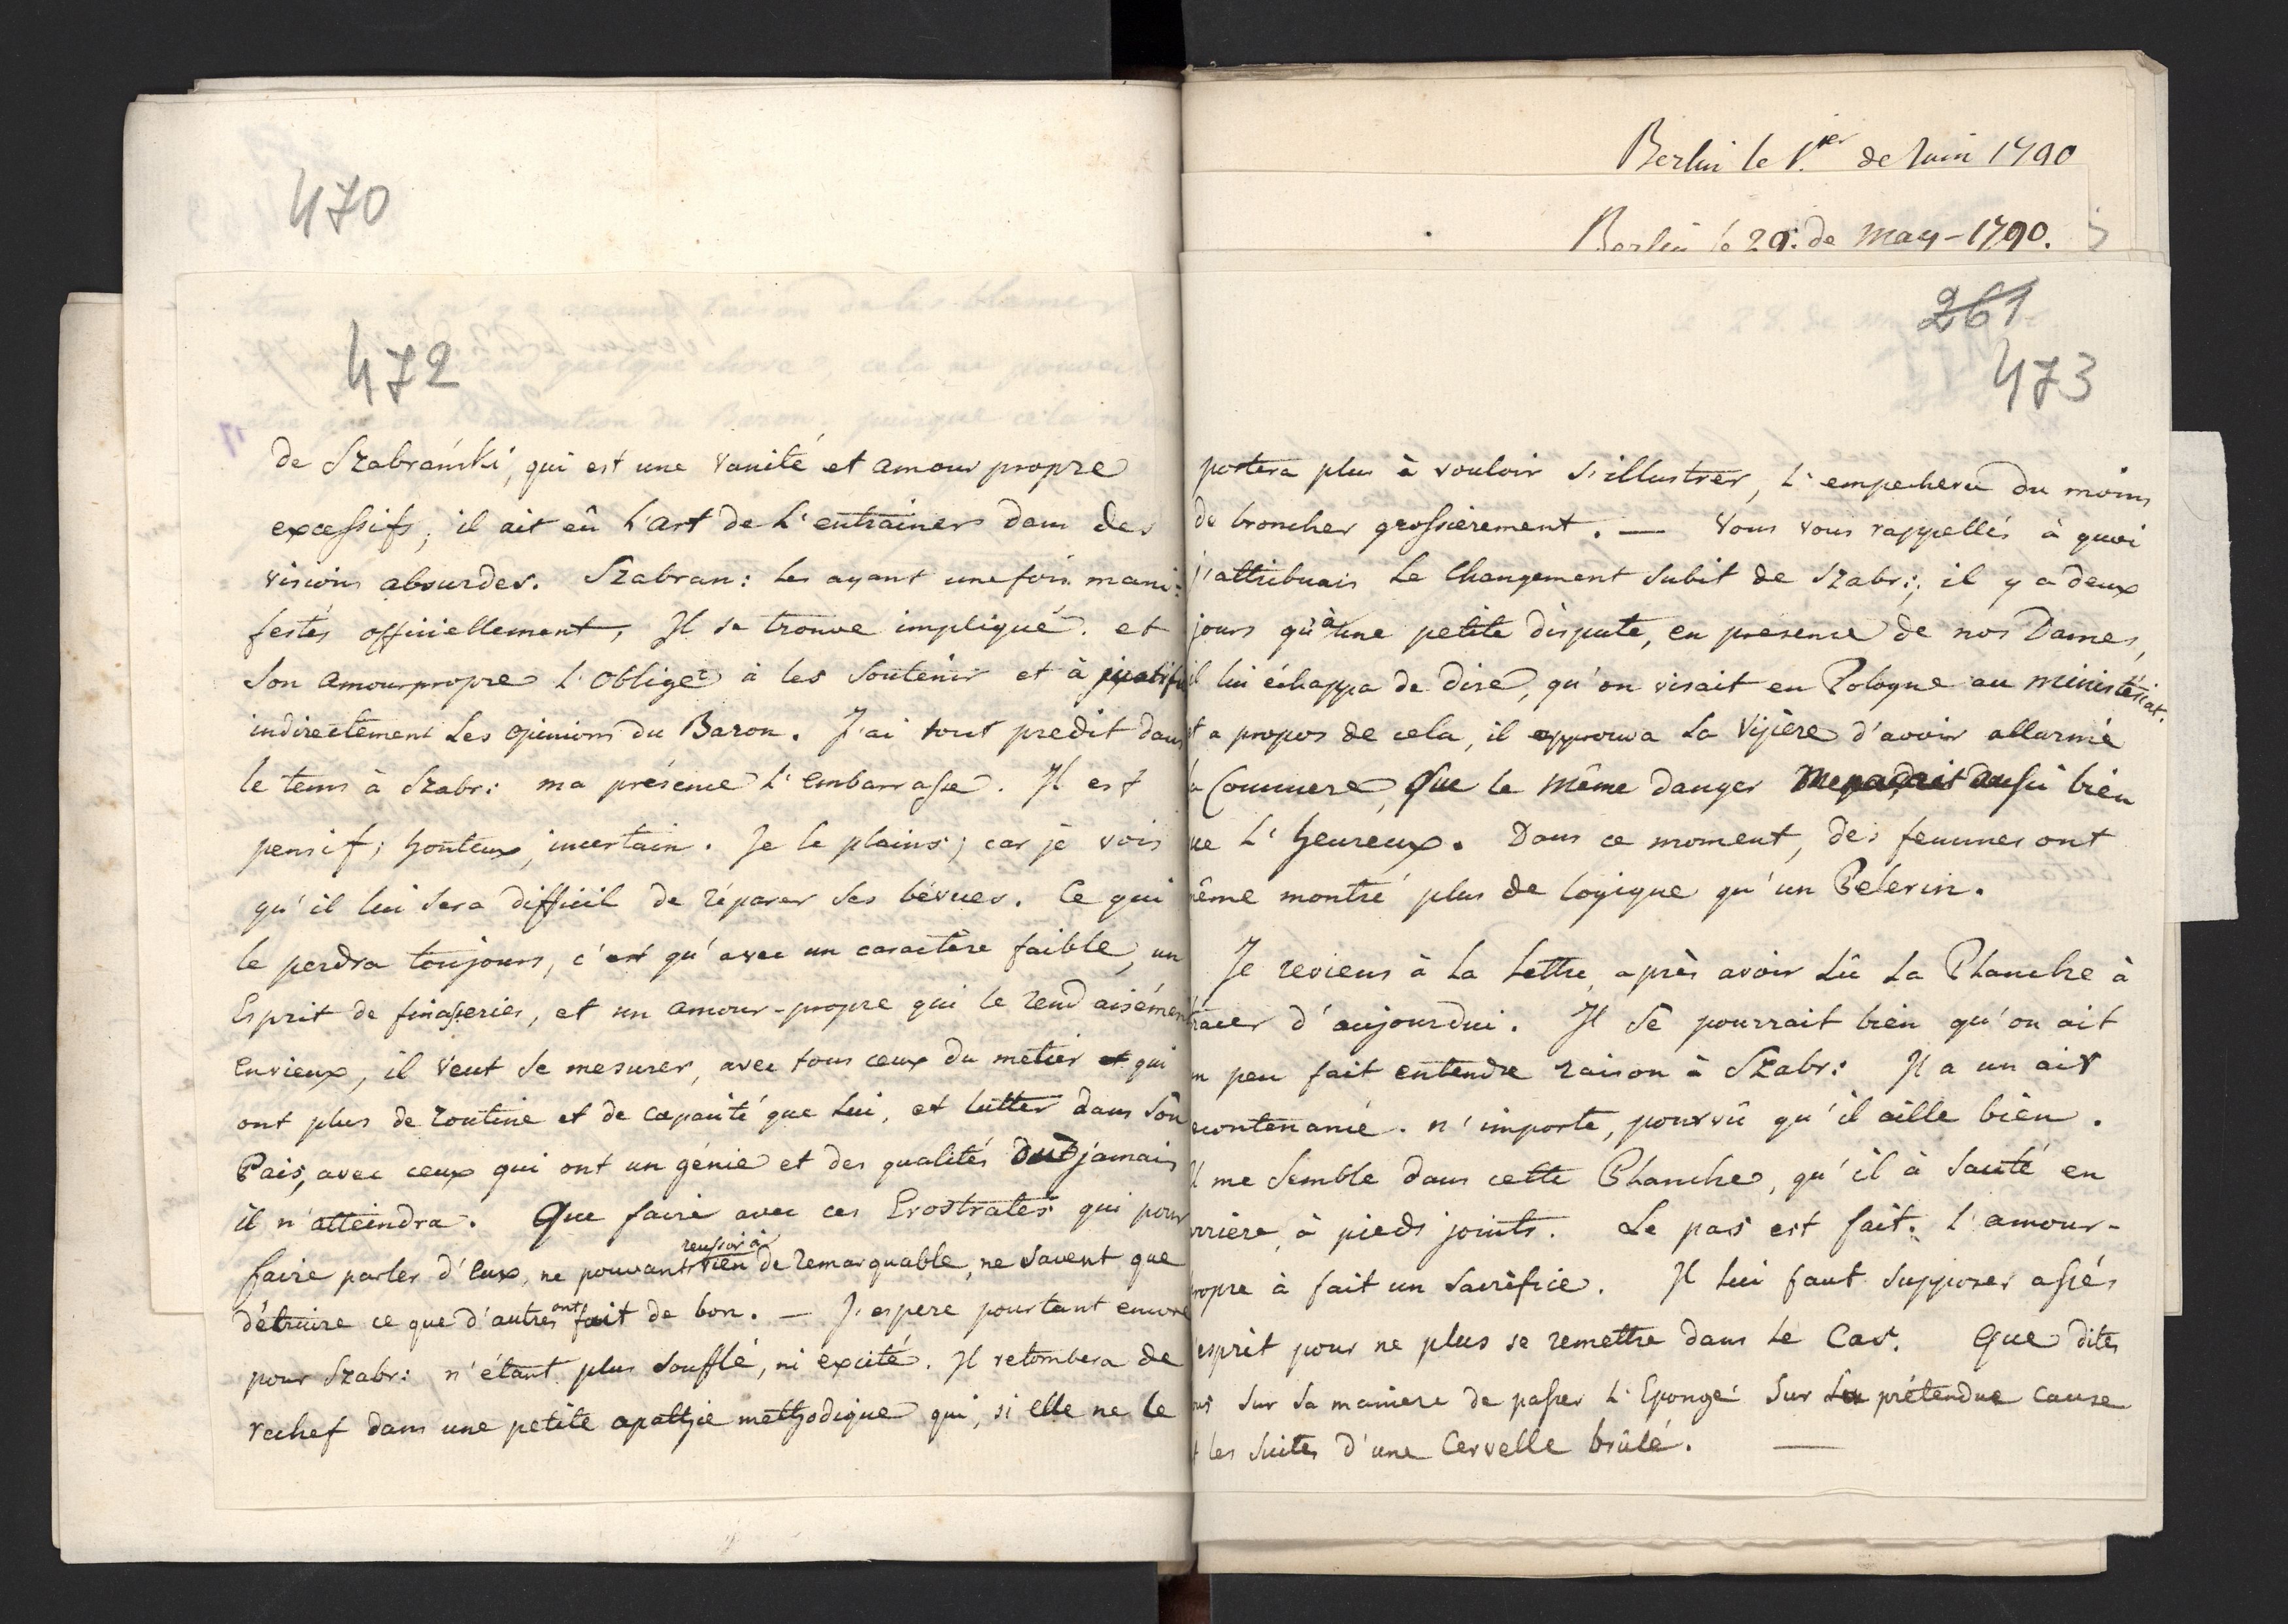 470
472
de Szabrański, qui est une vanité et amour propre
excessifs, il ait eû l'art de l'entrainer dans des
visions absurdes. Szabran: les ayant une fois mani:
festés officiellement, Il se trouve impliqué. et
son amourpropre l'oblige à les soutenir et à justifier
indirectement les opinions du Baron. J'ai tout predit dans
le tems à Szabr: ma présence l'embarrasse. Il est
pensif, honteux, incertain. Je le plains; car je vois
qu'il lui sera difficil de réparer ses bévues. Ce qui
le perdra toujours, c'est qu'avec un caractère faible, un
Esprit de finasseries, et un amour-propre qui le rend aisément
envieux, il veut se mesurer, avec tous ceux du metier qui
ont plus de routine et de capacité que lui, et lutter dans son
Pais, avec ceux qui ont un génie et des qualités jamais
il n'atteindra. Que faire avec ces Erostrates qui pour
faire parler d'eux, ne pouvant reussir à rien de remarquable, ne savent que
détruire ce que d'autres ont fait de bon. — J'espere pourtant encore
pour Szabr: n'étant plus soufflé, ni excité. Il retombera de
rechef dans une petite apathie methodique qui, si elle ne le
Berlin le 1.er de Juin 1790
Berlin le 29. de May - 1790.
261
473
portera plus à vouloir s'illustrer, l'empechera du moins
de broncher grossièrement. — Vous vous rappellés à quoi
j'attribuais le changement subit de Szabr:; il y a deux
jours qu'à une petite dispute, en presence de nos Dames,
il lui échappa de dire, qu'on visait en Pologne au ministériat.
et a propos de cela, il approuva la Vipère d'avoir allarmé
la Commere, que le même danger aussi bien
que l'heureux. Dans ce moment, des femmes ont
même montré plus de logique qu'un Pelerin.
Je reviens à la lettre après avoir lû la Planche à
tracer d'aujourdui. Il se pourrait bien qu'on ait
un peu fait entendre raison à Szabr: Il a un air
decontenancé. n'importe, pourvû qu'il aille bien.
Il me semble dans cette Planche, qu'il à sauté en
arrière, à pieds joints. Le pas est fait. l'amour-
propre à fait un sacrifice. Il lui faut supposer assés
d'esprit pour ne plus se remettre dans le Cas. Que dites
vous sur sa maniere de passer l'Eponge sur la prétendue cause
et les suites d'une Cervelle brûlé. —